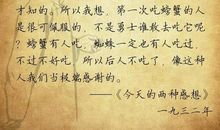 才知的。所以我想，第一次吃螃蟹的人
是很可佩服的，不是勇士谁敢去吃它呢
？螃蟹有人吃，蜘蛛一定也有人吃过，
不过不好吃，所以后人不吃了，像这种
人我们当极端感谢的。
——《今天的两种感想》
一九三二年